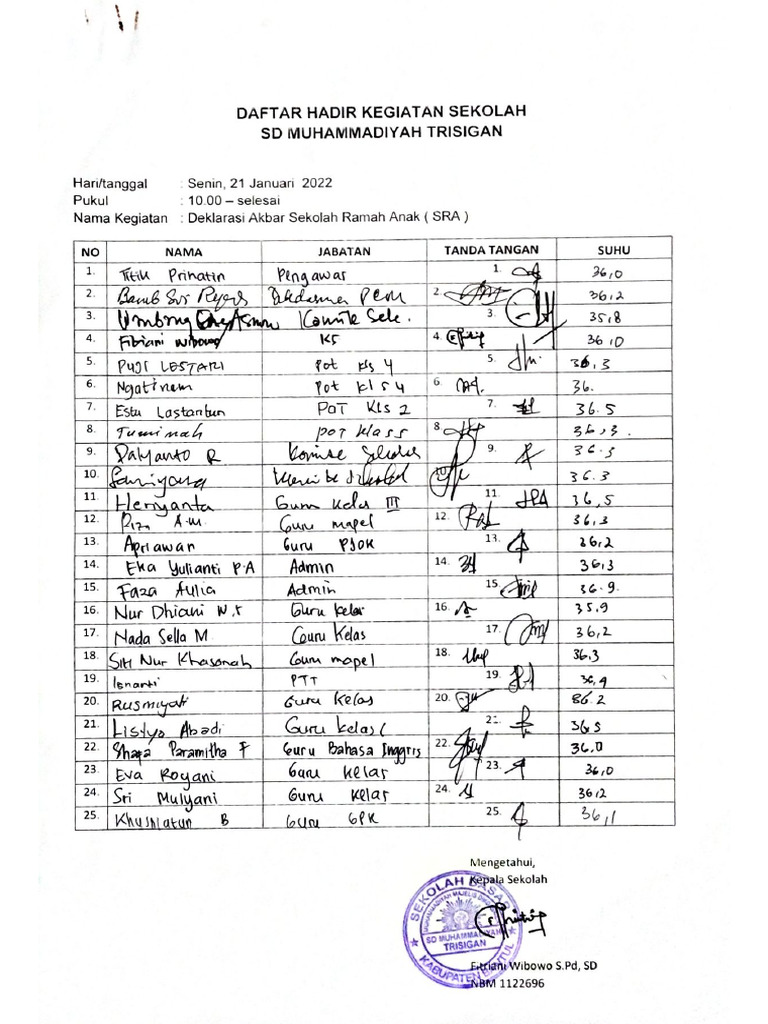 DAFTAR HADIR KEGIATAN SEKOLAH
SD MUHAMMADIYAH TRISIGAN
Hari/tanggal : Senin, 21 Januari 2022
Pukul : 10.00 – selesai
Nama Kegiatan : Deklarasi Akbar Sekolah Ramah Anak ( SRA )
NO NAMA JABATAN TANDA TANGAN SUHU
1. Titik Prihatin Pengawas 1. 36,0
2. 2. 36,2
3. Komite 3. 35,8
4. Fitriani Wibowo KS 4. 36,0
5. PUJI LESTARI pot kls 4 5. 36,3
6. Ngatinem pot kls 4 6. 36.
7. Estu Lastantun POT Kls 2 7. 36.5
8. Tuminah pot klass 8. 36,3.
9. Dalyanto R 9. 36.3
10. 10. 36.3
11. Heriyanta Guru Kelas III 11. 36,5
12. Riza A.M. Guru mapel 12. 36,3
13. Apriawan Guru PJOK 13. 36,2
14. Eka Yulianti P.A Admin 14. 36,3
15. Faza Aulia Admin 15. 36.9.
16. Nur Dhiani W.t Guru kelas 16. 35.9
17. Nada Sella M. Guru Kelas 17. 36,2
18. Siti Nur Khasanah Guru mapel 18. 36,3
19. Isnanti PTT 19. 36,4
20. Rusmiyati Guru Kelas 20. 86.2
21. Listyo Abadi Guru kelas 21. 36,5
22. Shafa Paramitha F Guru Bahasa Inggris 22. 36.0
23. Eva Royani Guru kelas 23. 36,0
24. Sri Mulyani Guru kelas 24. 36,2
25. Khusniatun B Guru GPK 25. 36,1
Mengetahui,
Kepala Sekolah
SEKOLAH DASAR
SD MUHAMMADIYAH
TRISIGAN
KABUPATEN BANTUL
Fitriani Wibowo S.Pd, SD
NBM 1122696